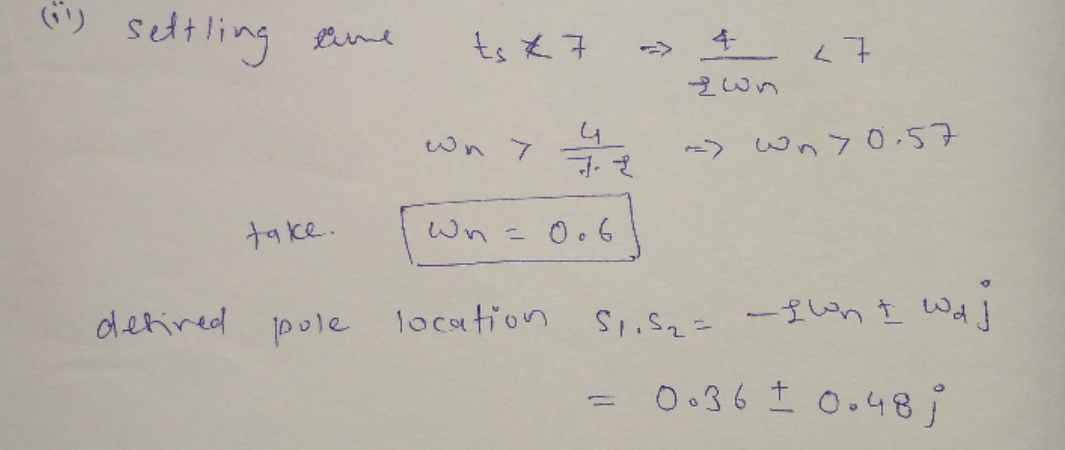 (ii) settling time ts < 7 => 4/ξωn < 7
ωn > 4/7.ξ => ωn > 0.57
take. ωn = 0.6
desired pole location s1,s2 = -ξωn ± ωd j
= 0.36 ± 0.48 j